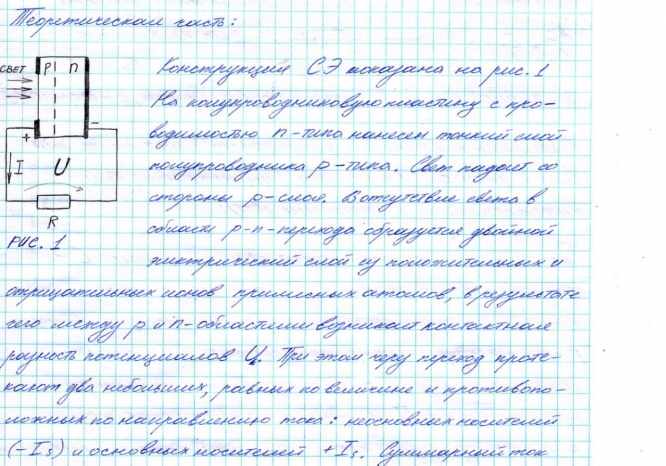 Теоретическая часть:
СВЕТ
p n
+ −
I U
R
РИС. 1
Конструкция СЭ показана на рис. 1
На полупроводниковую пластину с про-
водимостью n-типа нанесен тонкий слой
полупроводника p-типа. Свет падает со
стороны p-слоя. В отсутствие света в
области p-n-перехода образуется двойной
электрический слой из положительных и
отрицательных ионов примесных атомов, в результате
чего между p и n-областями возникает контактная
разность потенциалов U. При этом через переход проте-
кают два небольших, равных по величине и противопо-
ложных по направлению тока: неосновных носителей
(-Is) и основных носителей +Is. Суммарный ток